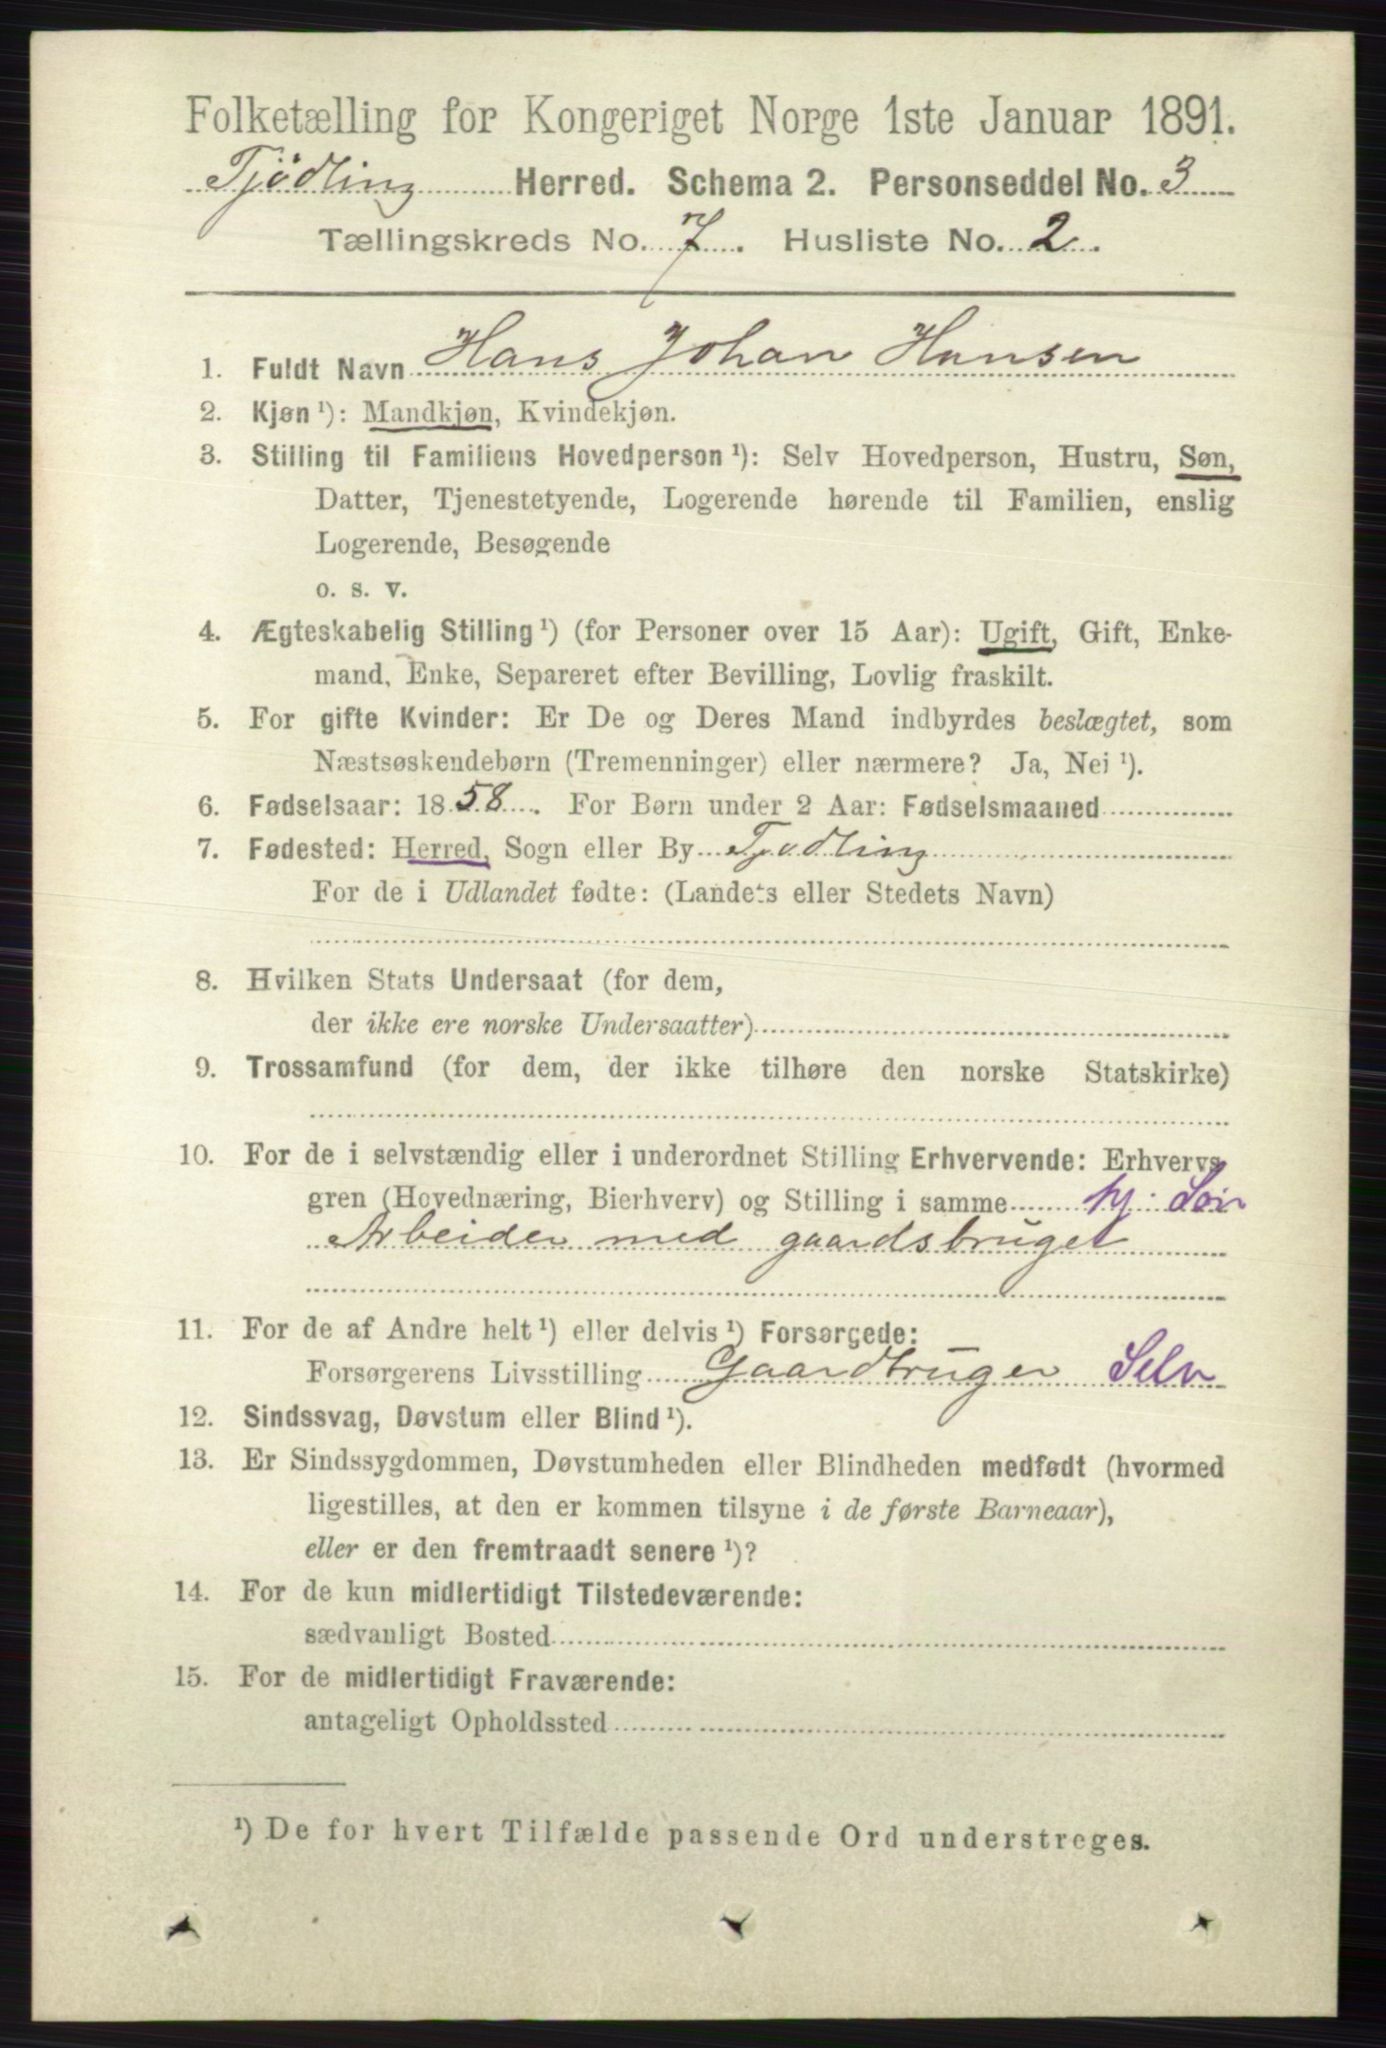 Folketælling for Kongeriget Norge 1ste Januar 1891.
Tjødling Herred. Schema 2. Personseddel No. 3
Tællingskreds No. 7. Husliste No. 2.
1. Fuldt Navn Hans Johan Hansen
2. Kjøn ¹): Mandkjøn, Kvindekjøn.
3. Stilling til Familiens Hovedperson ¹): Selv Hovedperson, Hustru, Søn,
Datter, Tjenestetyende, Logerende hørende til Familien, enslig
Logerende, Besøgende
o. s. v.
4. Ægteskabelig Stilling ¹) (for Personer over 15 Aar): Ugift, Gift, Enke-
mand, Enke, Separeret efter Bevilling, Lovlig fraskilt.
5. For gifte Kvinder: Er De og Deres Mand indbyrdes beslægtet, som
Næstsøskendebørn (Tremenninger) eller nærmere? Ja, Nei ¹).
6. Fødselsaar: 1858. For Børn under 2 Aar: Fødselsmaaned
7. Fødested: Herred, Sogn eller By Tjødling
For de i Udlandet fødte: (Landets eller Stedets Navn)
8. Hvilken Stats Undersaat (for dem,
der ikke ere norske Undersaatter)
9. Trossamfund (for dem, der ikke tilhøre den norske Statskirke)
10. For de i selvstændig eller i underordnet Stilling Erhvervende: Erhvervs
gren (Hovednæring, Bierhverv) og Stilling i samme
Arbeider med gaardsbruget
11. For de af Andre helt ¹) eller delvis ¹) Forsørgede:
Forsørgerens Livsstilling Gaardbruger Selv
12. Sindssvag, Døvstum eller Blind ¹).
13. Er Sindssygdommen, Døvstumheden eller Blindheden medfødt (hvormed
ligestilles, at den er kommen tilsyne i de første Barneaar),
eller er den fremtraadt senere ¹)?
14. For de kun midlertidigt Tilstedeværende:
sædvanligt Bosted
15. For de midlertidigt Fraværende:
antageligt Opholdssted
¹) De for hvert Tilfælde passende Ord understreges.